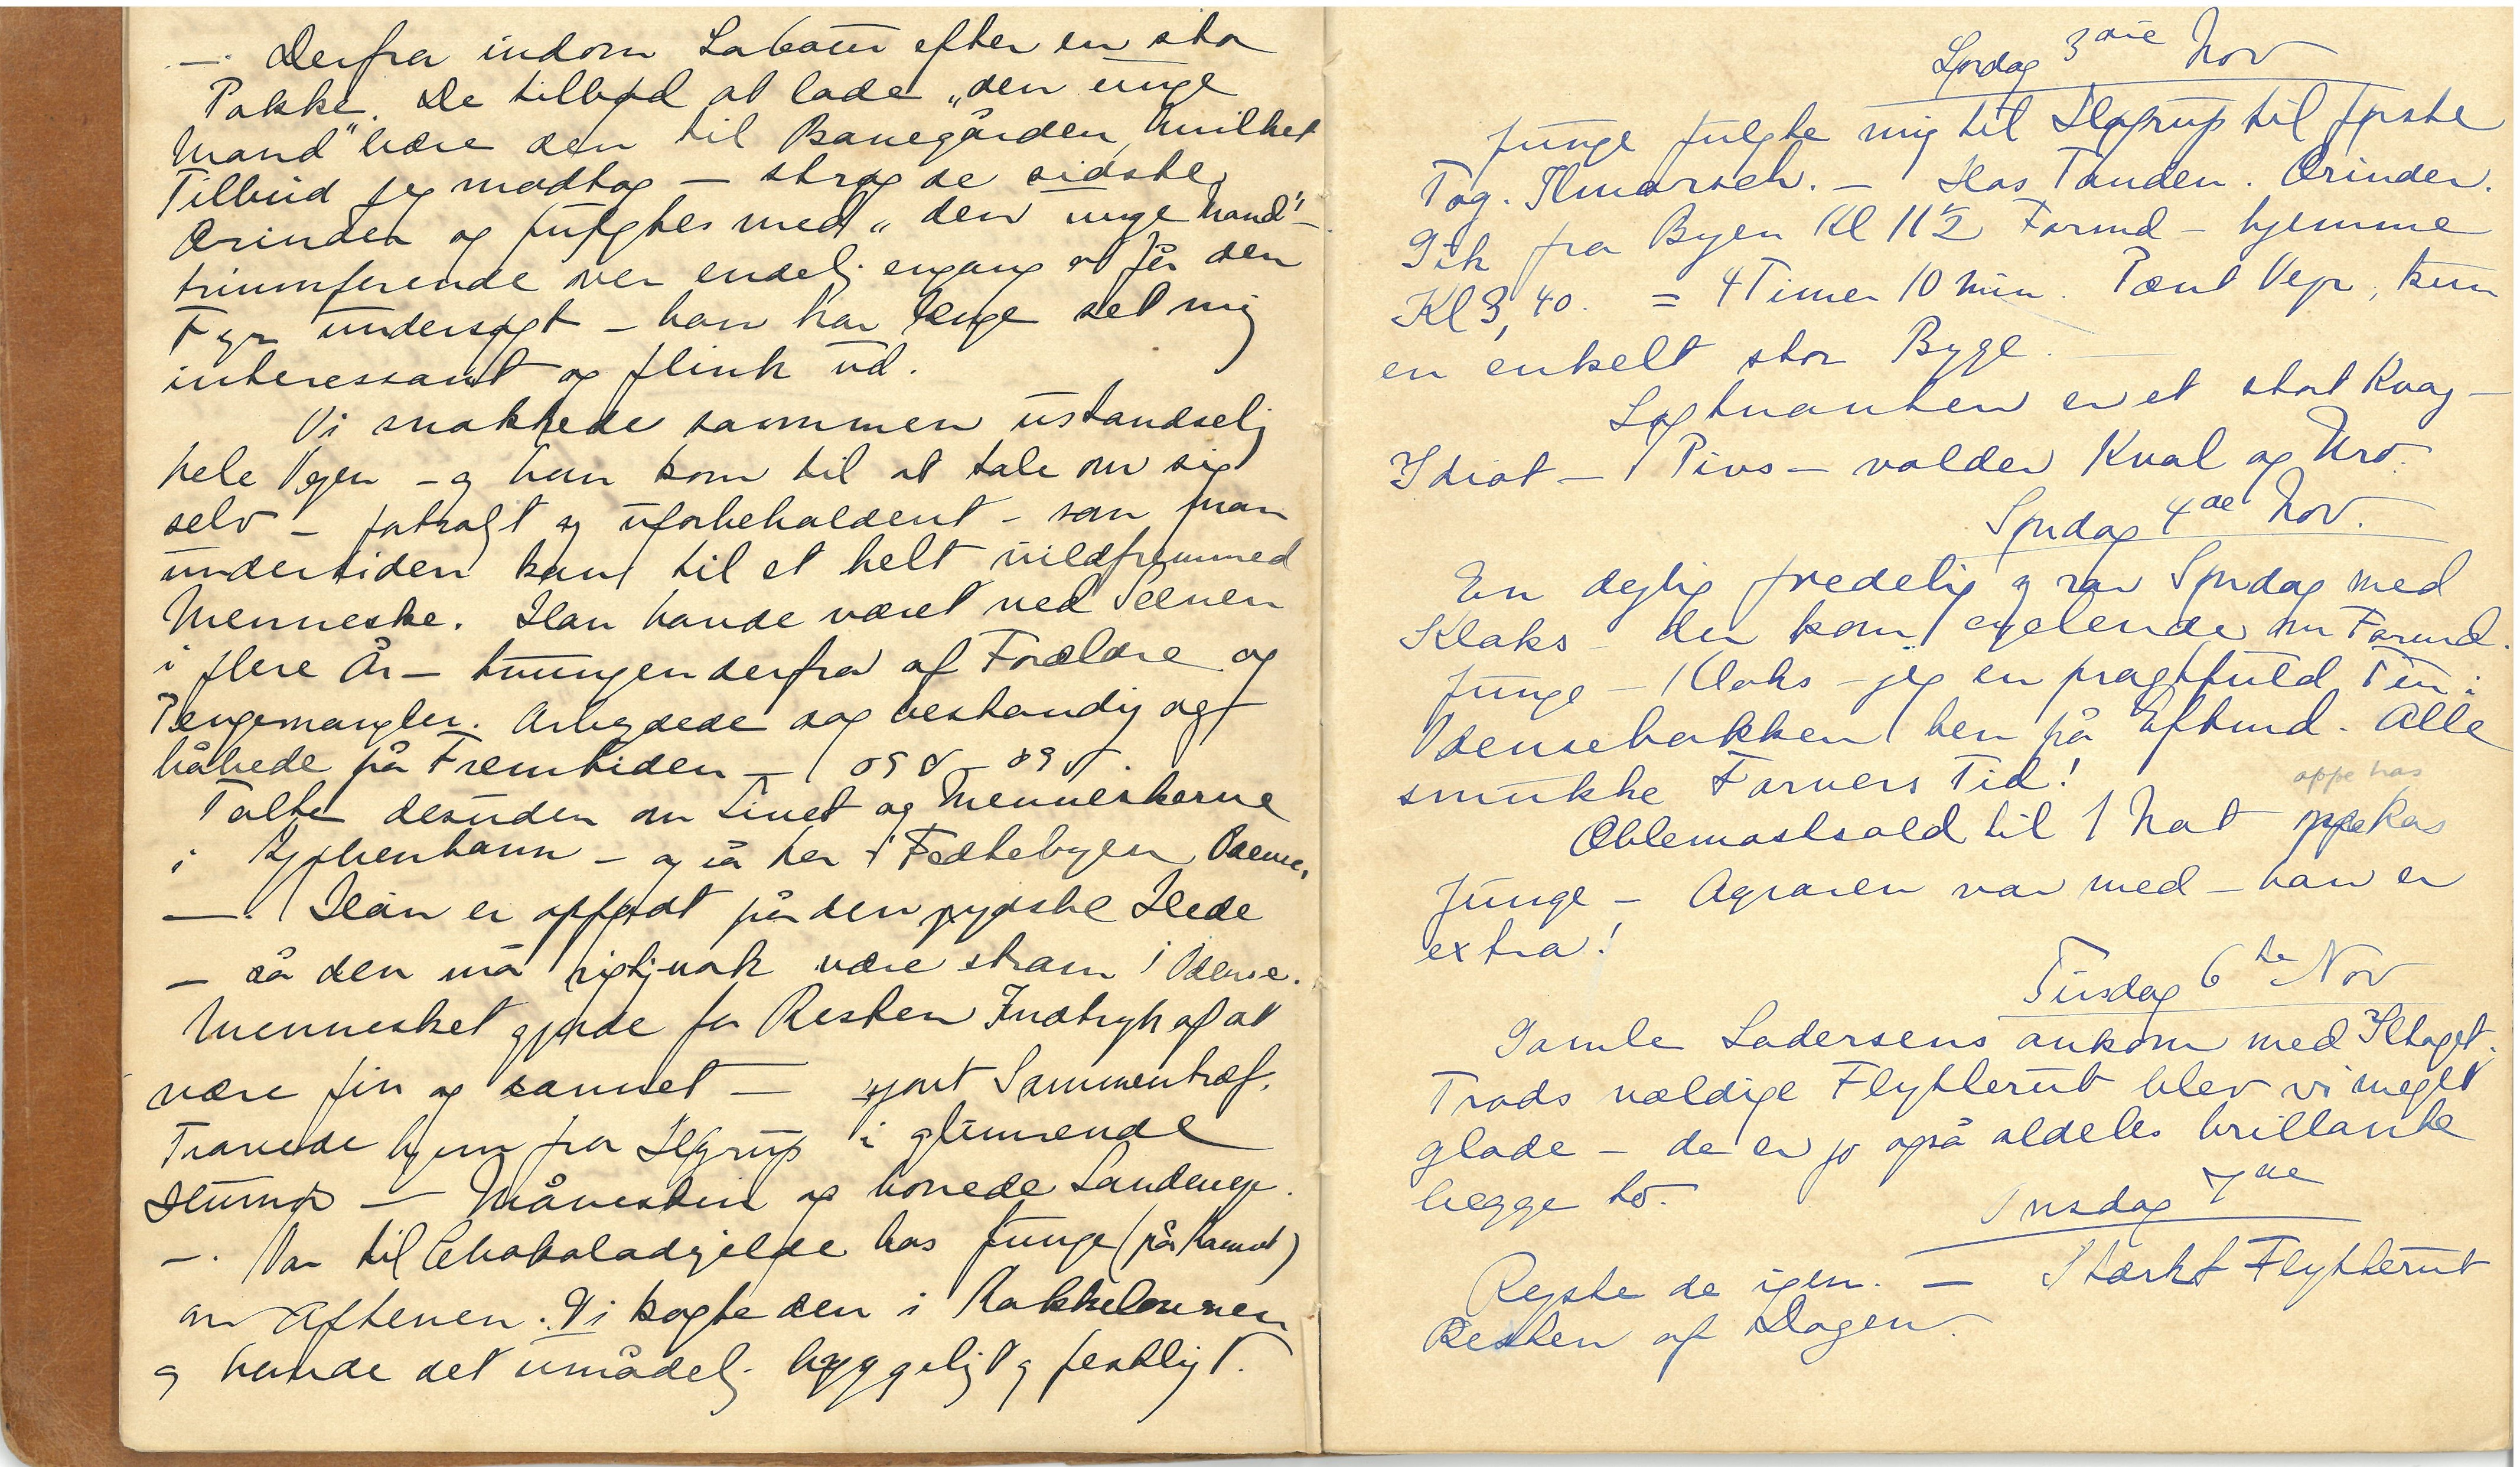 —. Derfra indom Labatur efter en stor
Pakke. De tilbød at lade „den unge
Mand" bære den til Banegården, hvilket
Tilbud jeg modtog — strøg de sidste
Ærinder og fulgtes med „den unge Mand" –
triumferende over endelig engang at få den
Fyr undersøgt – han har længe set mig
interessant og flink ud.
Vi snakkede sammen ustandselig
hele Vejen – og han kom til at tale om sig
selv – fortroligt og uforbeholdent – som man
undertiden kan til et helt vildfremmed
Menneske. Han havde været ved Scenen
i flere År – tvungen derfra af Forældre og
Pengemangler. Arbejdede dog bestandig og
håbede på Fremtiden – osv – osv.
Talte desuden om Livet og Menneskerne
i Kjøbenhavn – og så her i Fedtebyen Odense.
—. Han er opfødt på den jydske Hede
– så den må rigtignok være stram i Odense.
Mennesket gjorde for Resten Indtryk af at
være fin og dannet — sjovt Sammentræf.
Travede hjem fra Højrup i glimrende
Humør — Måneskin og bonede Landeveje.
—. Var til Chokoladegilde hos Junge (på Kamret)
om Aftenen. Vi kogte den i Kakkelovnen
og havde det umådelig hyggeligt og festligt.
Lørdag 3die Nov
Junge fulgte mig til Højrup til første
Tog. Ilmarsch. — Hos Tanden. Ærinder.
Gik fra Byen Kl 11½ Formd – hjemme
Kl 3,40. = 4 Timer 10 Min. Pænt Vejr, kun
en enkelt stor Byge.
Løjtnanten er et stort Kvaj –
Idiot – Pivs – volder Kval og Uro.
Søndag 4de Nov.
En dejlig fredelig og rar Søndag med
Klaks – der kom cyclende om Formd.
Junge – Klaks – jeg en pragtfuld Tur i
Odensebakken hen på Eftmd. Alle
smukke Farvers Tid!
oppe hos
Æblemostsold til 1 Nat oppe hos
Junge – Agraren var med – han er
extra!
Tirsdag 6te Nov
Gamle Ladersens ankom med Iltoget.
Trods vældige Flytterut blev vi meget
glade – de er jo også aldeles brillante
begge to.
Onsdag 7de
Rejste de igen. — Stærkt Flytterut
Resten af Dagen.